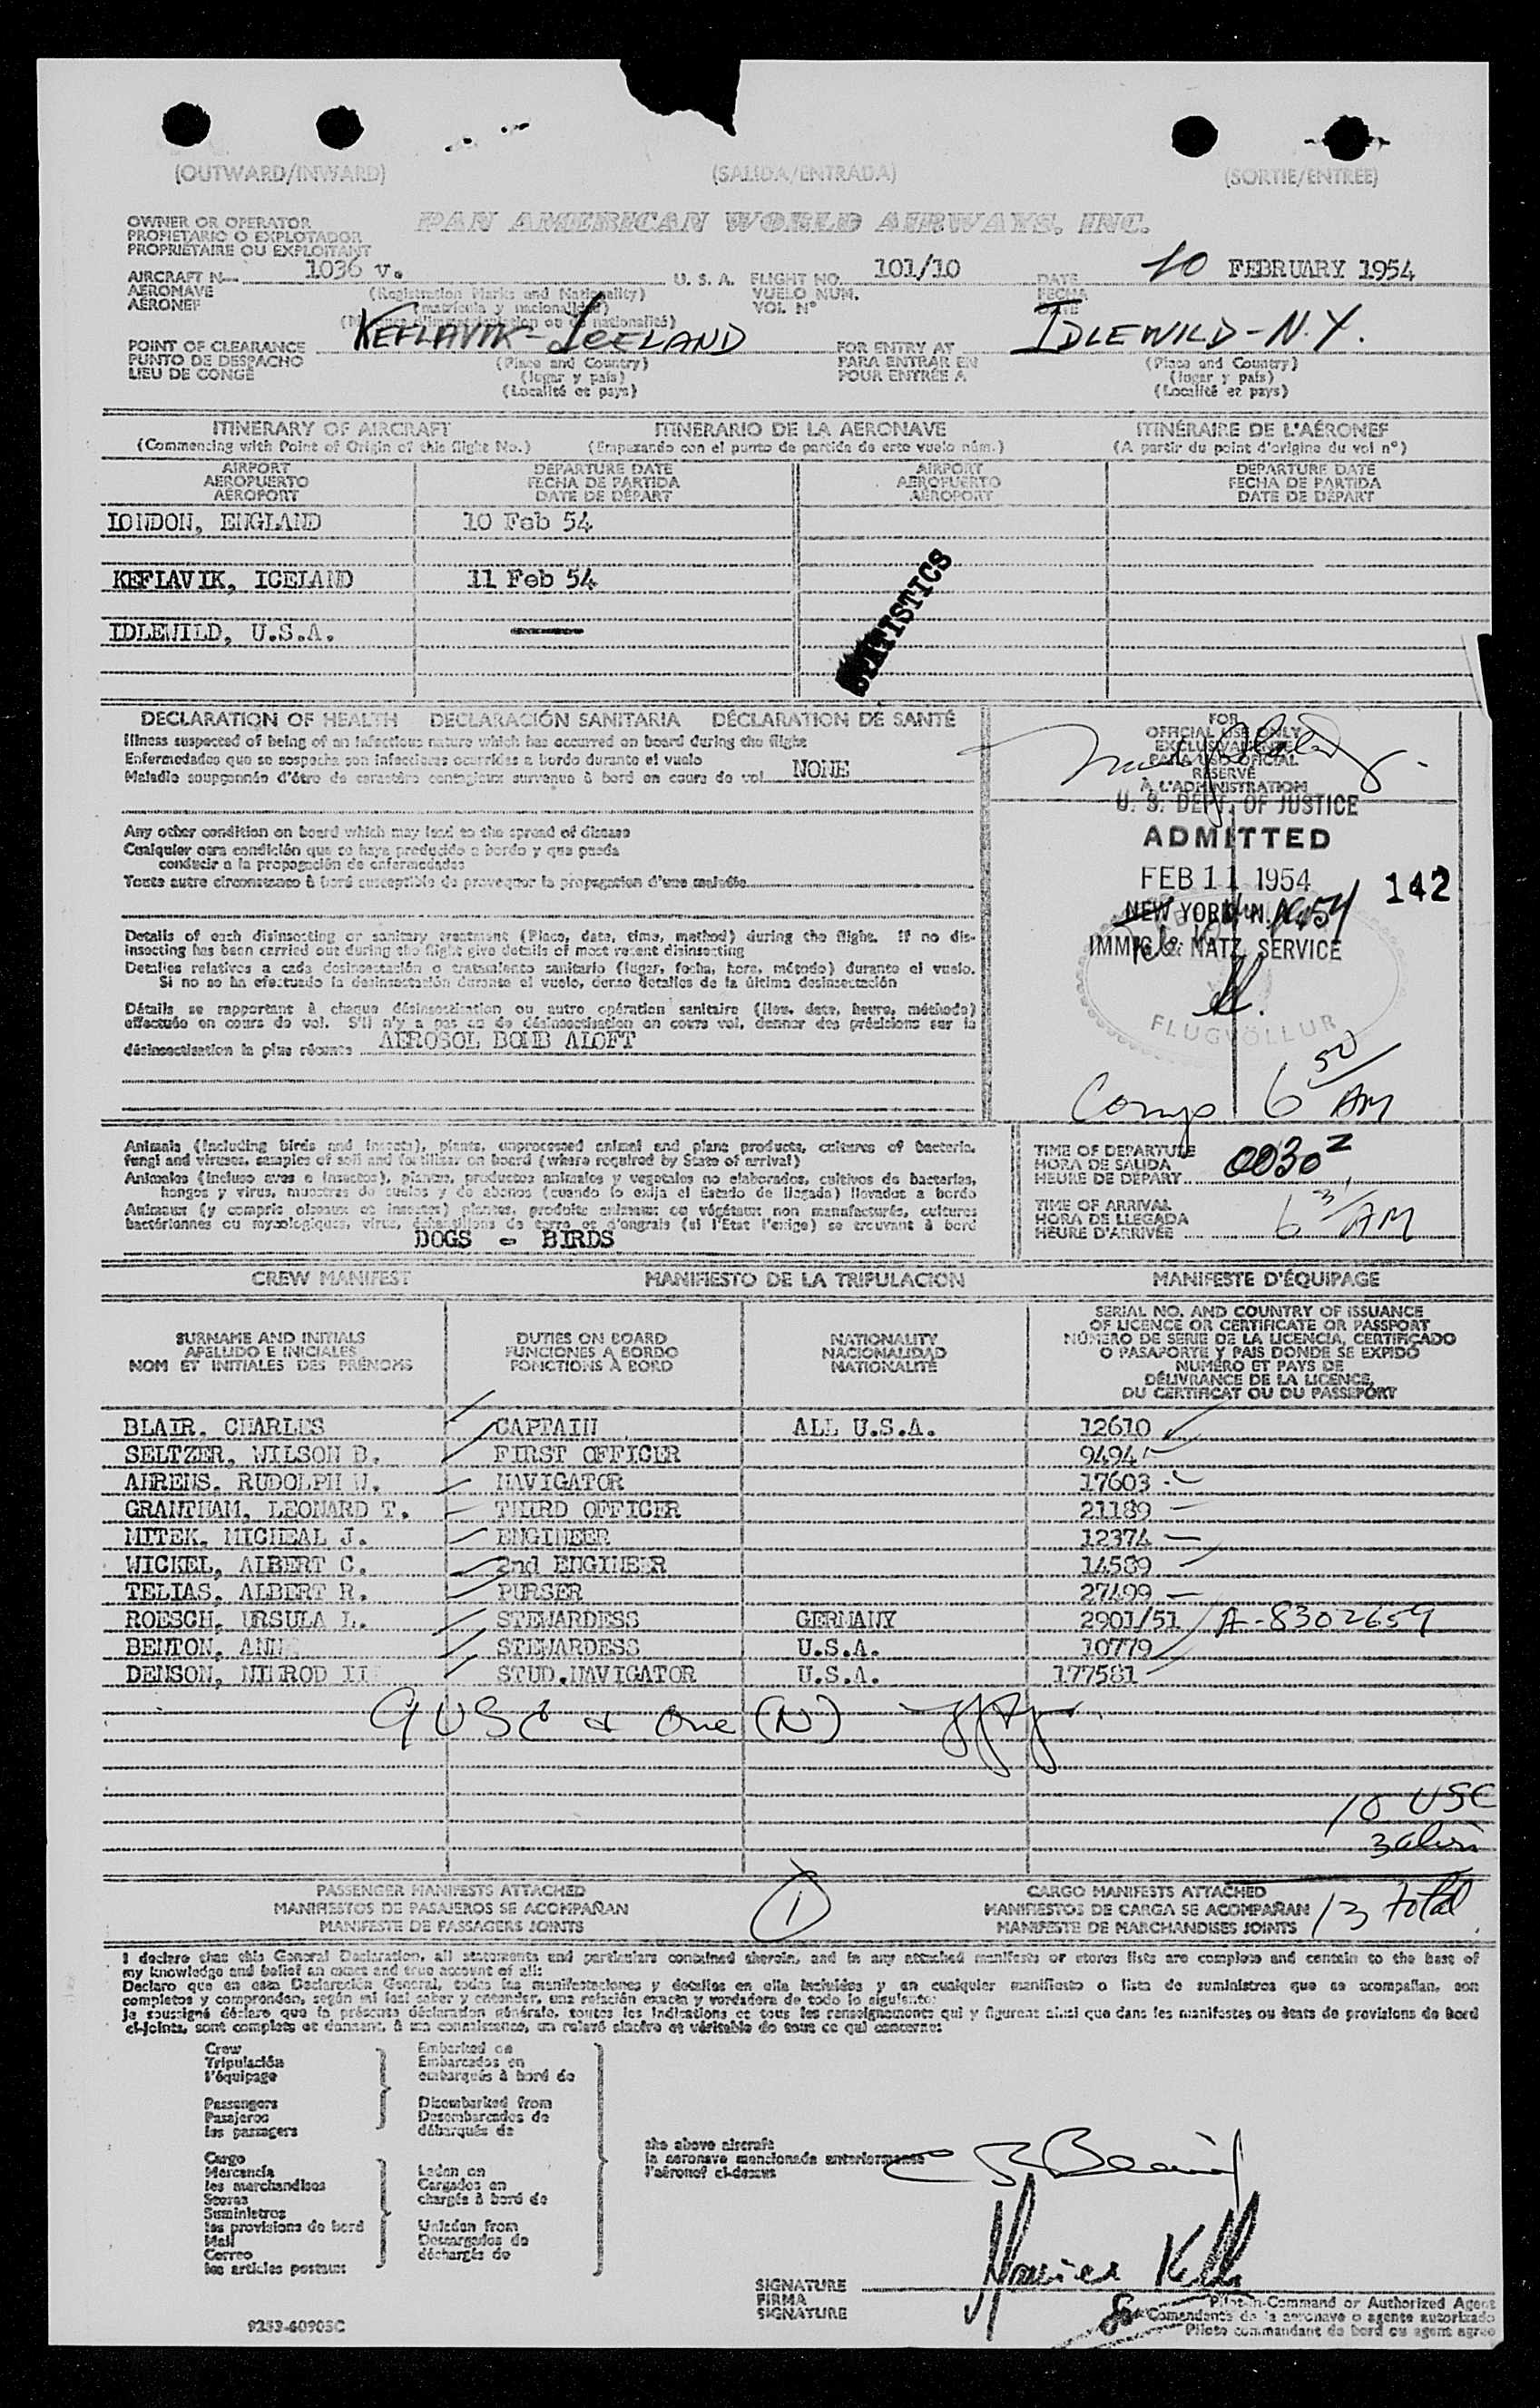 (OUTWARD/INWARD) (SALIDA/ENTRADA) (SORTIE/ENTREE)
OWNER OR OPERATOR PAN AMERICAN WORLD AIRWAYS, INC.
PROPIETARIO O EXPLOTADOR
PROPRIÉTAIRE OU EXPLOITANT
AIRCRAFT N 1036 v. U. S. A. FLIGHT NO. 101/10 DATE 10 FEBRUARY 1954
AERONAVE (Registration Marks and Nationality) VUELO NUM. FECHA
AÉRONEF (matrícula y nacionalidad) VOL Nº DATE
POINT OF CLEARANCE KEFLAVIK - ICELAND FOR ENTRY AT IDLEWILD - N.Y.
PUNTO DE DESPACHO (Place and Country) PARA ENTRAR EN (Place and Country)
LIEU DE CONGÉ (lugar y país) POUR ENTRÉE A (lugar y país)
(Localité et pays) (Localité et pays)
ITINERARY OF AIRCRAFT ITINERARIO DE LA AERONAVE ITINÉRAIRE DE L'AÉRONEF
(Commencing with Point of Origin of this flight No.) (Empezando con el punto de partida de este vuelo núm.) (A partir du point d'origine du vol nº)
AIRPORT DEPARTURE DATE AIRPORT DEPARTURE DATE
AEROPUERTO FECHA DE PARTIDA AEROPUERTO FECHA DE PARTIDA
AÉROPORT DATE DE DÉPART AÉROPORT DATE DE DÉPART
LONDON, ENGLAND 10 Feb 54
KEFLAVIK, ICELAND 11 Feb 54
IDLEWILD, U.S.A.
STATISTICS
DECLARATION OF HEALTH DECLARACIÓN SANITARIA DÉCLARATION DE SANTÉ
Illness suspected of being of an infectious nature which has occurred on board during the flight
Enfermedades que se sospecha son infecciosas ocurridas a bordo durante el vuelo
Maladie soupçonnée d'être de caractère contagieux survenue à bord en cours de vol NONE
Any other condition on board which may lead to the spread of disease
Cualquier otra condición que se haya producido a bordo y que pueda
conducir a la propagación de enfermedades
Toute autre circonstance à bord susceptible de provoquer la propagation d'une maladie
Details of each disinsecting or sanitary treatment (Place, date, time, method) during the flight. If no dis-
insecting has been carried out during the flight give details of most recent disinsecting
Detalles relativos a cada desinsectación o tratamiento sanitario (lugar, fecha, hora, método) durante el vuelo.
Si no se ha efectuado la desinsectación durante el vuelo, dense detalles de la última desinsectación
Détails se rapportant à chaque désinsectisation ou autre opération sanitaire (lieu, date, heure, méthode)
effectuée en cours de vol. S'il n'y a pas eu de désinsectisation en cours vol, donner des précisions sur la
désinsectisation la plus récente AEROSOL BOMB ALOFT
FOR
OFFICIAL USE ONLY
EXCLUSIVAMENTE
PARA USO OFICIAL
RÉSERVÉ
À L'ADMINISTRATION
U. S. DEPT. OF JUSTICE
ADMITTED
FEB 11 1954 142
NEW YORK, N.Y.
IMMIG. & NATZ. SERVICE
FLUGVÖLLUR
Comp 6 50 AM
Animals (including birds and insects), plants, unprocessed animal and plant products, cultures of bacteria,
fungi and viruses, samples of soil and fertilizer on board (where required by State of arrival)
Animales (incluso aves e insectos), plantas, productos animales y vegetales no elaborados, cultivos de bacterias,
hongos y virus, muestras de suelos y de abonos (cuando lo exija el Estado de llegada) llevados a bordo
Animaux (y compris oiseaux et insectes) plantes, produits animaux ou végétaux non manufacturés, cultures
bactériennes ou mycologiques, virus, échantillons de terre et d'engrais (si l'État l'exige) se trouvant à bord
DOGS - BIRDS
TIME OF DEPARTURE
HORA DE SALIDA 0030 Z
HEURE DE DÉPART
TIME OF ARRIVAL
HORA DE LLEGADA 6 31 AM
HEURE D'ARRIVÉE
CREW MANIFEST MANIFIESTO DE LA TRIPULACION MANIFESTE D'ÉQUIPAGE
SURNAME AND INITIALS DUTIES ON BOARD NATIONALITY SERIAL NO. AND COUNTRY OF ISSUANCE
APELLIDO E INICIALES FUNCIONES A BORDO NACIONALIDAD OF LICENCE OR CERTIFICATE OR PASSPORT
NOM ET INITIALES DES PRÉNOMS FONCTIONS À BORD NATIONALITÉ NÚMERO DE SERIE DE LA LICENCIA, CERTIFICADO
O PASAPORTE Y PAIS DONDE SE EXPIDÓ
NUMÉRO ET PAYS DE
DÉLIVRANCE DE LA LICENCE,
DU CERTIFICAT OU DU PASSEPORT
BLAIR, CHARLES CAPTAIN ALL U.S.A. 12610
SELTZER, WILSON B. FIRST OFFICER 9494
AHRENS, RUDOLPH W. NAVIGATOR 17603
GRANTHAM, LEONARD T. THIRD OFFICER 21189
MITEK, MICHEAL J. ENGINEER 12374
WICKEL, ALBERT C. 2nd ENGINEER 14589
TELIAS, ALBERT R. PURSER 27499
ROESCH, URSULA L. STEWARDESS GERMANY 2901/51 A-8302659
BENTON, ANN STEWARDESS U.S.A. 10779
DENSON, NIMROD II STUD.NAVIGATOR U.S.A. 177581
9 USC & One (N)
10 USC
3 alien
13 total
PASSENGER MANIFESTS ATTACHED 1 CARGO MANIFESTS ATTACHED
MANIFIESTOS DE PASAJEROS SE ACOMPAÑAN MANIFIESTOS DE CARGA SE ACOMPAÑAN
MANIFESTE DE PASSAGERS JOINTS MANIFESTE DE MARCHANDISES JOINTS
I declare that this General Declaration, all statements and particulars contained therein, and in any attached manifests or stores lists are complete and contain to the base of
my knowledge and belief an exact and true account of all:
Declaro que en esta Declaración General, todas las manifestaciones y detalles en ella incluidos y en cualquier manifiesto o lista de suministros que se acompañan, son
completos y comprenden, según mi leal saber y entender, una relación exacta y verdadera de todo lo siguiente:
Je soussigné déclare que la présente déclaration générale, toutes les indications et tous les renseignements qui y figurent ainsi que dans les manifestes ou états de provisions de bord
ci-joints, sont complets et donnent, à ma connaissance, un relevé sincère et véritable de tout ce qui concerne:
Crew Embarked on
Tripulación Embarcados en
l'équipage embarqués à bord de
Passengers Disembarked from
Pasajeros Desembarcados de
les passagers débarqués de
the above aircraft
la aeronave mencionada anteriormente
l'aéronef ci-dessus
Cargo
Mercancía Laden on
les marchandises Cargados en
Stores chargés à bord de
Suministros
les provisions de bord Unladen from
Mail Descargados de
Correo déchargés de
les articles postaux
SIGNATURE
FIRMA
SIGNATURE
Pilot-in-Command or Authorized Agent
Comandante de la aeronave o agente autorizado
Pilote commandant de bord ou agent agréé
9253-60905C